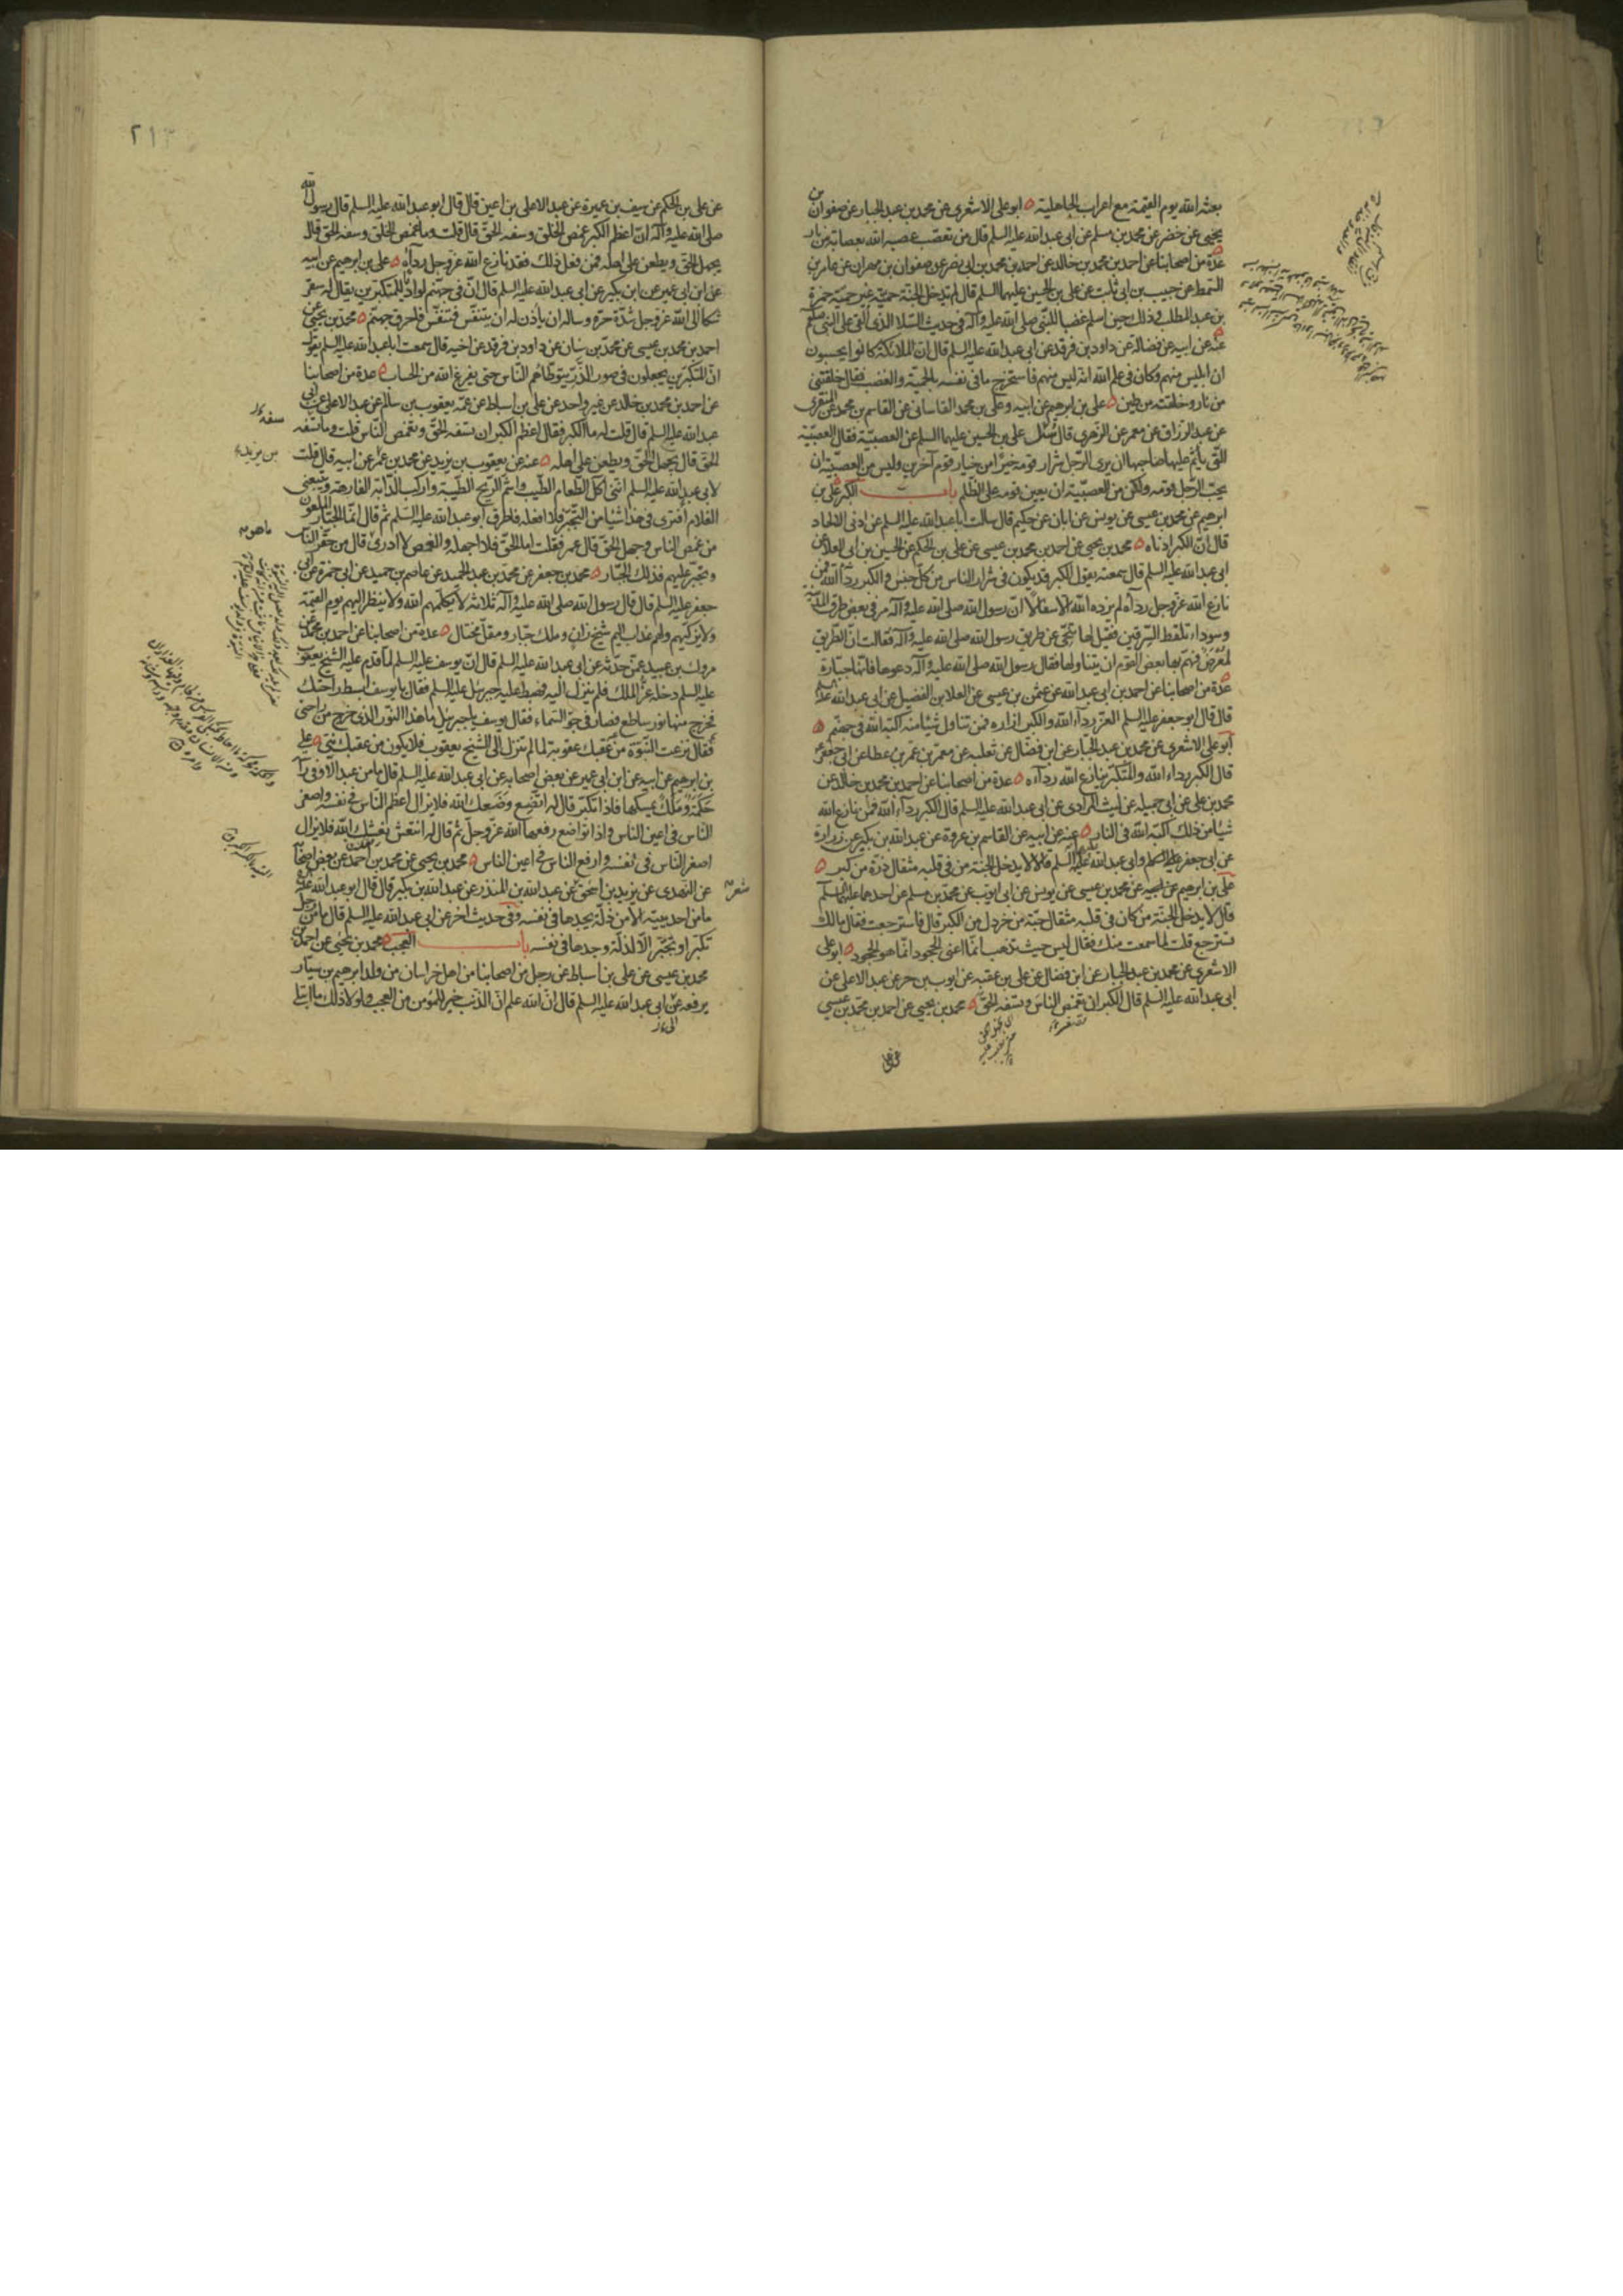 بعثه الله يوم القيمة مع اعراب الجاهلية ابو علی الاشعری عن محمد بن عبد الجبار عن صفوان بن
يحيی عن خضر عن محمد بن مسلم عن ابی عبد الله عليه السلم قال من تعصّب عصبه الله بعصابة من نار
عدّة من اصحابنا عن احمد بن محمد بن خالد عن احمد بن محمد بن ابی نصر عن صفوان بن مهران عن عامر بن
السّمط عن حبيب بن ابی ثابت عن علی بن الحسين عليهما السلم قال لم يدخل الجنّة حميّة غير حميّة حمزة
بن عبد المطلب وذلك حين اسلم غضبا للنّبی صلی الله عليه وآله فی حديث السّلا الذی القی علی النّبی صلعم
عنه عن ابيه عن فضالة عن داود بن فرقد عن ابی عبد الله عليه السلم قال ان الملائكة كانوا يحسبون
ان ابليس منهم وكان فی علم الله انه ليس منهم فاستخرج ما فی نفسه بالحميّة والغضب فقال خلقتنی
من نار وخلقته من طين علی بن ابرهيم عن ابيه وعلی بن محمد القاسانی عن القاسم بن محمد عن المنقری
عن عبد الرزاق عن معمر عن الزهری قال سُئل علی بن الحسين عليهما السلم عن العصبيّة فقال العصبيّة
التّی يأثم عليها صاحبها ان يری الرّجل شرار قومه خيرًا من خيار قوم آخرين وليس من العصبيّة ان
يحبّ الرّجل قومه ولكن من العصبيّة ان يعين قومه علی الظّلم باب الكبر علی بن
ابرهيم عن محمد بن عيسی عن يونس عن ابان عن حكيم قال سالت ابا عبد الله عليه السلم عن ادنی الالحاد
قال انّ الكبر ادناه محمد بن يحيی عن احمد بن محمد بن عيسی عن علی بن الحكم عن الحسين بن ابی العلا عن
ابی عبد الله عليه السلم قال سمعته يقول الكبر قد يكون فی شرار الناس من كلّ جنس والكبر رداء الله فمن
نازع الله عزّ وجل رداءه لم يزده الله الا سفالًا انّ رسول الله صلی الله عليه وآله مرّ فی بعض طرق المدينة
وسوداء تلقط السّرقين فقيل لها تنحّی عن طريق رسول الله صلی الله عليه وآله فقالت انّ الطّريق
لمُعْرَض فهمّ بها بعض القوم ان يتناولها فقال رسول الله صلی الله عليه وآله دعوها فانّها جبّارة
عدّة من اصحابنا عن احمد بن ابی عبد الله عن عثمن بن عيسی عن العلا بن الفضيل عن ابی عبد الله عليه السلم
قال قال ابو جعفر عليه السلم العزّ رداء الله والكبر ازاره فمن تناول شيئا منه اكبّه الله فی جهنّم
ابو علی الاشعری عن محمد بن عبد الجبّار عن ابن فضّال عن ثعلبه عن معمّر بن عمر بن عطا عن ابی جعفر
قال الكبر رداء الله والمتكبّر ينازع الله رداءه عدة من اصحابنا عن احمد بن محمد بن خالد عن
محمد بن علی عن ابی جميله عن ليث المرادی عن ابی عبد الله عليه السلم قال الكبر رداء الله فمن نازع الله
شيئا من ذلك اكبّه الله فی النار عنه عن ابيه عن القاسم بن عروة عن عبد الله بن بكير عن زرارة
عن ابی جعفر وابی عبد الله عليهما السلم قالا لا يدخل الجنّة من فی قلبه مثقال ذرّة من كبر
علی بن ابرهيم عن محمد بن عيسی عن يونس عن ابی ايوب عن محمّد بن مسلم عن احدهما عليهما السلم
قال لا يدخل الجنّة من كان فی قلبه مثقال حبّة من خردل من الكبر قال فاسترجعت فقال مالك
تسترجع قلت لما سمعت منك فقال ليس حيث تذهب انّما اعنی الجحود انّما هو الجحود ابو علی
الاشعری عن محمد بن عبد الجبار عن ابن فضال عن علی بن عقبه عن ايوب بن حر عن عبد الاعلی عن
ابی عبد الله عليه السلم قال الكبر ان تغمص الناس وتسفه الحقّ محمد بن يحيی عن احمد بن محمّد بن عيسی
عن علی
٢١٣
عن علی بن الحكم عن سيف بن عميرة عن عبد الاعلی بن اعين قال قال ابو عبد الله عليه السلم قال رسول الله
صلی الله عليه وآله انّ اعظم الكبر غمص الخلق وسفه الحقّ قال قلت وما غمص الخلق وسفه الحقّ قال
يجهل الحقّ ويطعن علی اهله فمن فعل ذلك فقد نازع الله عزّ وجل رداءه علی بن ابرهيم عن ابيه
عن ابن ابی عمير عن ابن بكير عن ابی عبد الله عليه السلم قال انّ فی جهنّم لواديًا للمتكبّرين يقال له سقر
شكا الی الله عزّ وجل شدّة حرّه وساله ان يأذن له ان يتنفّس فتنفّس فاحرق جهنّم محمّد بن يحيی عن
احمد بن محمد بن عيسی عن محمّد بن سنان عن داود بن فرقد عن اخيه قال سمعت ابا عبد الله عليه السلم يقول
انّ المتكبّرين يجعلون فی صور الذّرّ يتوطّاهم النّاس حتی يفرغ الله من الحساب عدة من اصحابنا
عن احمد بن محمد بن خالد عن غير واحد عن علی بن اسباط عن عمّه يعقوب بن سالم عن عبد الاعلی عن ابی
عبد الله عليه السلم قال قلت له ما الكبر فقال اعظم الكبر ان تسفه الحقّ وتغمص النّاس قلت وما تسفه
الحقّ قال يجهل الحقّ ويطعن علی اهله عنه عن يعقوب بن يزيد عن محمد بن عمر عن ابيه قال قلت
لابی عبد الله عليه السلم انّنی اكل الطّعام الطّيب واشمّ الرّيح الطّيبة واركب الدّابّة الفارهة ويتبعنی
الغلام فتری فی هذا شيئا من التّجبّر فلا افعله فاطرق ابو عبد الله عليه السّلم ثم قال انّما الجبّار الملعون
من غمص الناس وجهل الحقّ قال عمر فقلت امّا الحقّ فلا اجهله والغمص لا ادری قال من حقّر النّاس
وتجبّر عليهم فذلك الجبّار محمد بن جعفر عن محمّد بن عبد الحميد عن عاصم بن حميد عن ابی حمزة عن ابی
جعفر عليه السلم قال قال رسول الله صلی الله عليه وآله ثلاثه لا يكلّمهم الله ولا ينظر اليهم يوم القيمة
ولا يزكّيهم ولهم عذاب اليم شيخ زان وملك جبّار ومقلّ مختال عدة من اصحابنا عن احمد بن محمّد عن
مروك بن عبيد عمّن حدّثه عن ابی عبد الله عليه السلم قال انّ يوسف عليه السلم لمّا قدم عليه الشّيخ يعقوب
عليه السلم دخله عزّ الملك فلم ينزل اليه فهبط عليه جبرئيل عليه السلم فقال يا يوسف ابسط راحتك
فخرج منها نور ساطع فصار فی جوّ السّماء فقال يوسف يا جبرئيل ما هذا النّور الذی خرج من راحتی
فقال نزعت النّبوّة من عقبك عقوبة لما لم تنزل الی الشّيخ يعقوب فلا يكون من عقبك نبیّ علی
بن ابرهيم عن ابيه عن ابن ابی عمير عن بعض اصحابه عن ابی عبد الله عليه السلم قال ما من عبد الا وفی راسه
حَكَمَة ومَلَك يمسكها فاذا تكبّر قال له اتّضع وضعك الله فلا يزال اعظم النّاس فی نفسه واصغر
النّاس فی اعين الناس واذا تواضع رفعها الله عزّ وجلّ ثم قال له انتعش نعشك الله فلا يزال
اصغر النّاس فی نفسه وارفع الناس فی اعين الناس محمد بن يحيی عن محمد بن احمد عن بعض اصحابه
عن النّهدی عن يزيد بن اسحق عن عبد الله بن المنذر عن عبد الله بن بكير قال قال ابو عبد الله عليه
ما من احد يتيه الّا من ذلّة يجدها فی نفسه وفی حديث اخر عن ابی عبد الله عليه السلم قال ما من رجل
تكبّر او تجبّر الّا لذلّة وجدها فی نفسه باب العجب محمد بن يحيی عن احمد بن
محمد بن عيسی عن علی بن اسباط عن رجل من اصحابنا من اهل خراسان من ولد ابرهيم بن سيّار
يرفعه عن ابی عبد الله عليه السلم قال انّ الله علم انّ الذّنب خير للمؤمن من العجب ولولا ذلك ما ابتلی
شعر